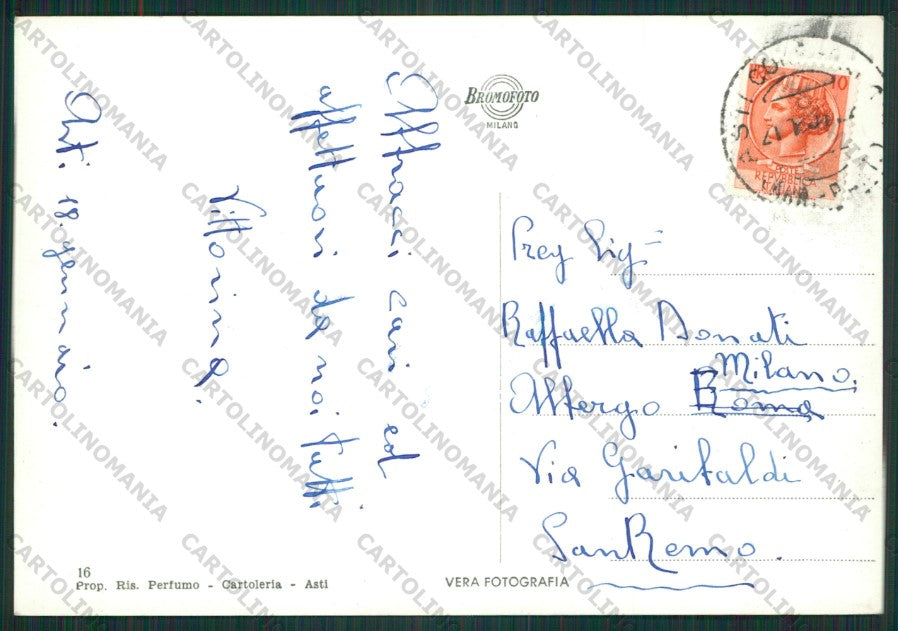 Abbracci cari ed
affettuosi da noi tutti.
Vittorina.
Asti 18. gennaio.
BROMOFOTO
MILANO
ASTI
POSTE
REPUBBLICA
Preg Sig=
Raffaella Donati
Milano.
Albergo Roma
Via Garibaldi
San Remo.
16
Prop. Ris. Perfumo - Cartoleria - Asti
VERA FOTOGRAFIA
CARTOLINOMANIA